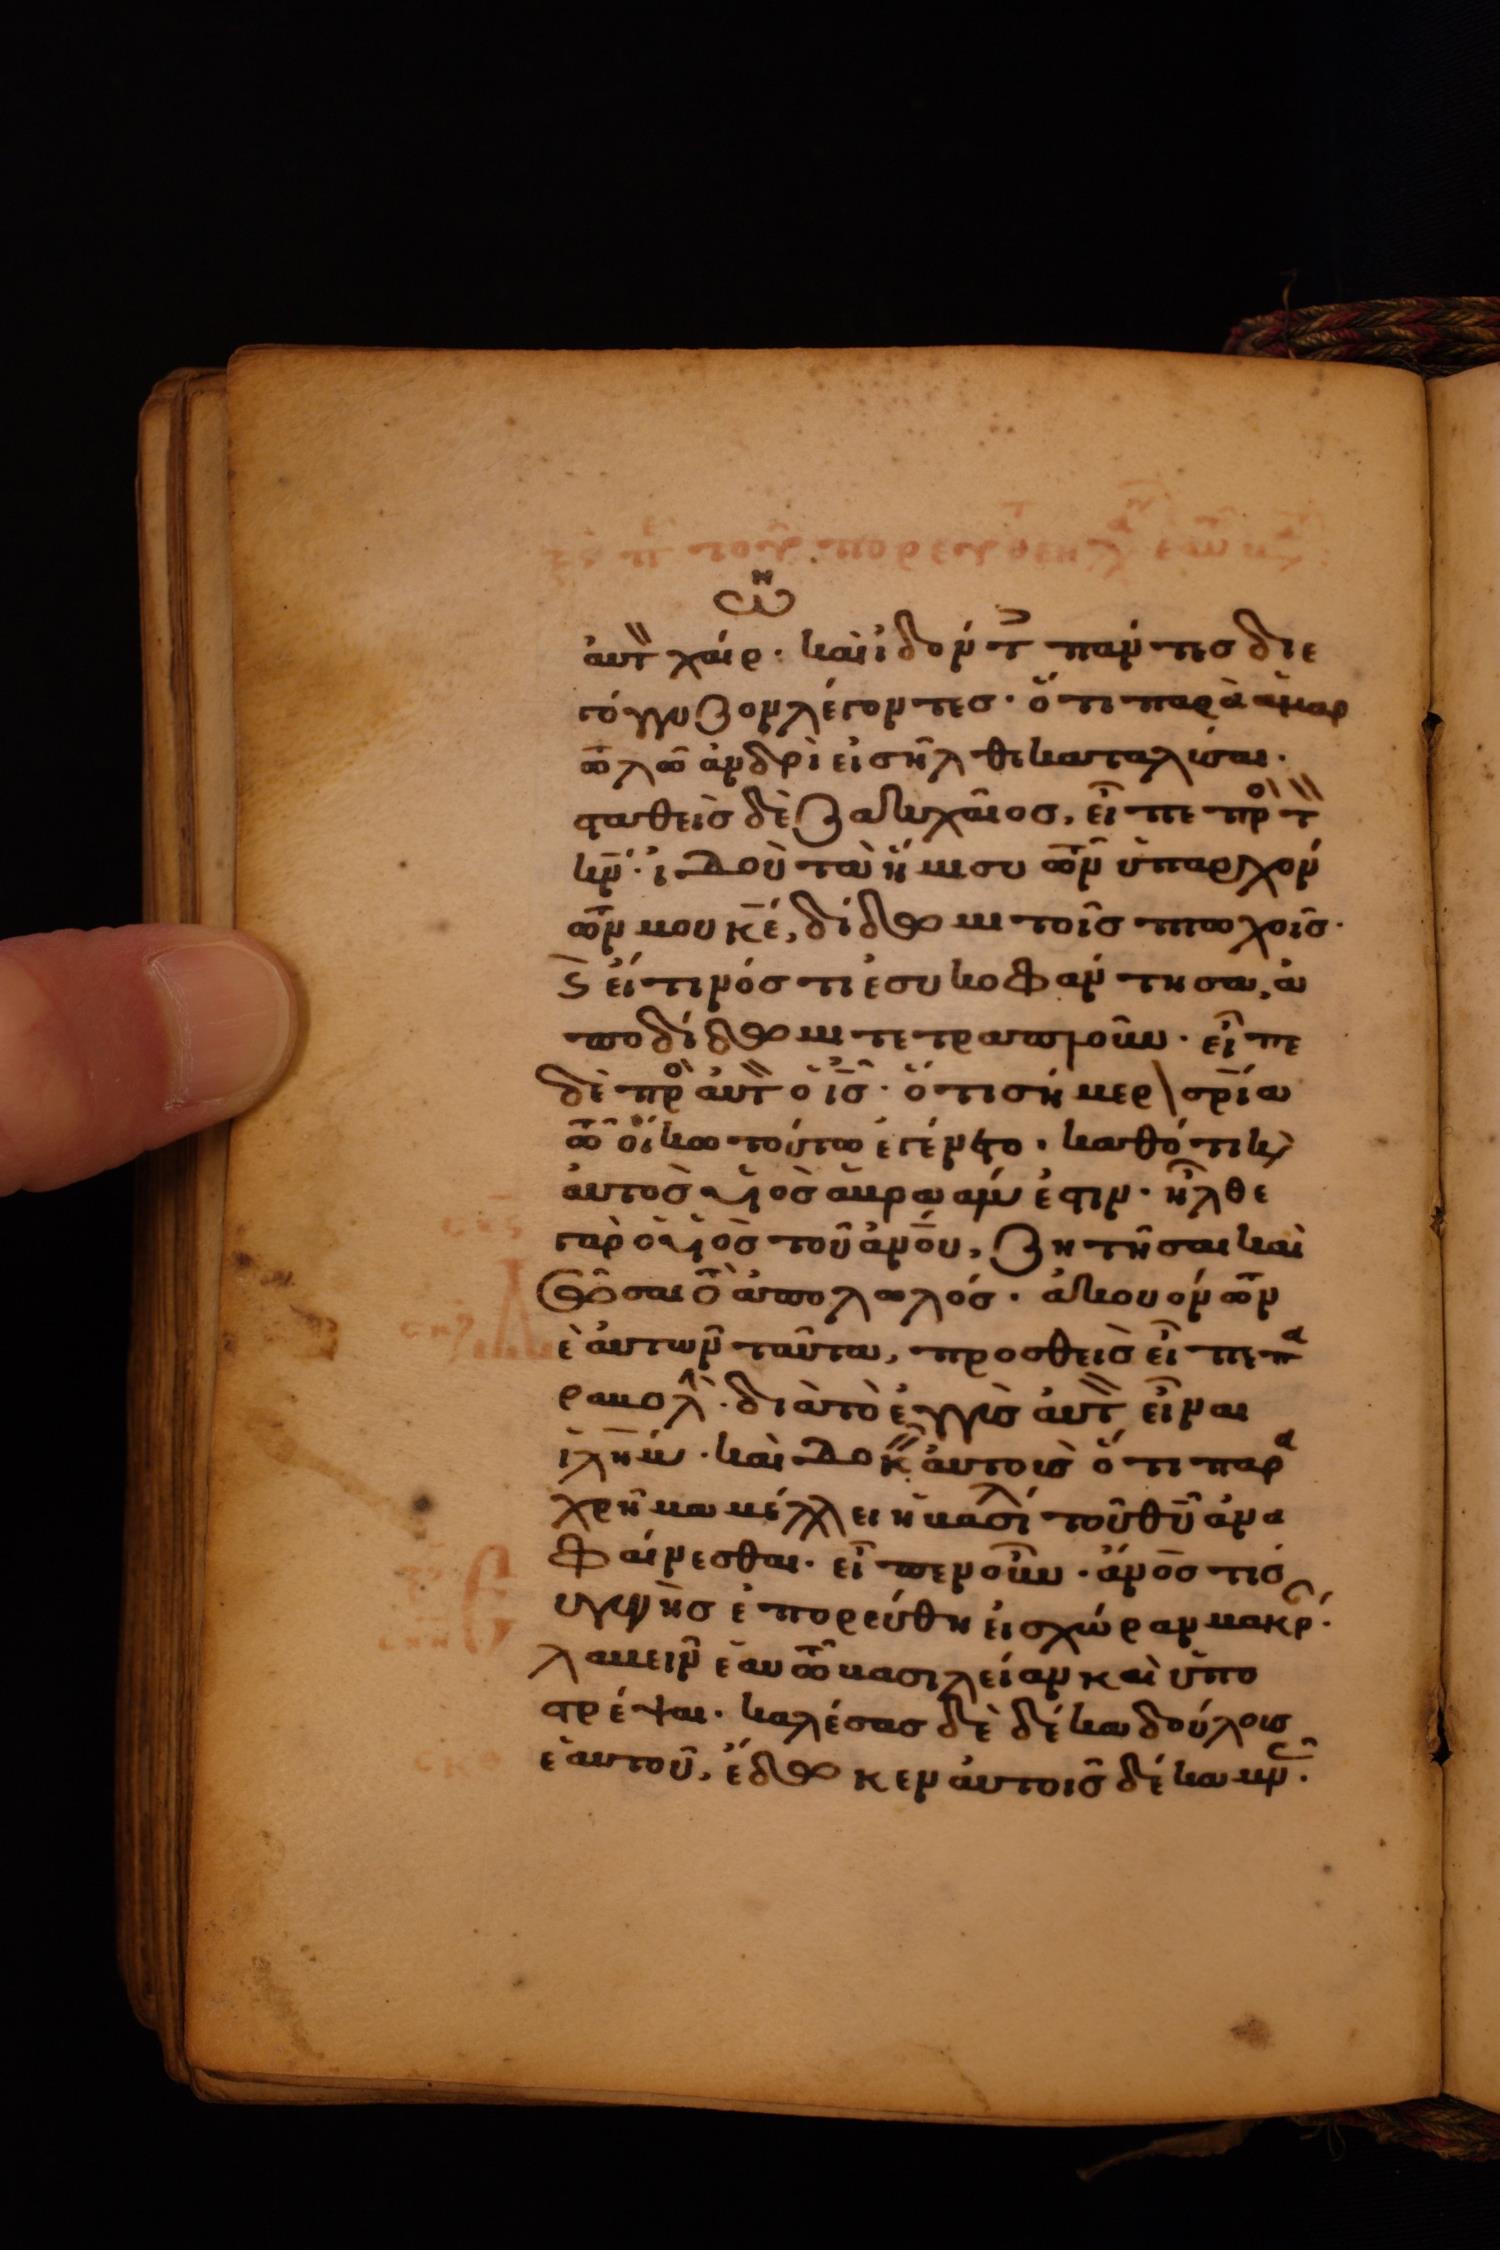 ἀυτ χαίρ· καὶ ἰδόντ πάντεσ διε
γόγγυζον λέγοντεσ· ὅτι παρὰ ἁμαρ
τωλῶ ἀνδρὶ εἰσῆλθε καταλῦσαι·
σταθεὶσ δὲ ζακχαῖοσ, εἶπε πρ τ
κν· ἰδοὺ τὰ ἡμίσυ τῶν ὑπαρχόν
των μου κε, δίδωμι τοῖσ πτωχοῖσ·
ϛ εἴ τινόσ τι ἐσυκοφάντησα, ἀ
ποδίδωμι τετραπλοῦν· εἶπε
δὲ πρ ἀυτ ὁ ισ· ὅτι σήμερ σρία
τῶ οἴκω τούτω ἐγένετο· καθότι κ
ἀυτὸσ υἱὸσ ἀβραάμ ἐστιν· ἦλθε
γὰρ ὁ υἱὸσ τοῦ ἀνου, ζητῆσαι καὶ
σῶσαι τὸ ἀπολωλόσ· ἀκουόντων
δὲ ἀυτῶν ταῦτα, προσθεὶσ εἶπε πα
ραβολ· διὰ τὸ ἐγγὺσ ἀυτ εἶναι
ιλημ· καὶ δοκ ἀυτοὺσ ὅτι παρα
χρῆμα μέλλει ἡ βασιλ τοῦ θυ ἀνα
φαίνεσθαι· εἶπεν οὖν· ἄνοσ τισ
ἐυγενὴσ ἐπορεύθη εἰσ χώραν μακρ·
λαβεῖν ἑαυτῶ βασιλείαν καὶ ὑπο
στρέψαι· καλέσασ δὲ δέκα δούλουσ
ἑαυτοῦ, ἔδωκεν ἀυτοῖσ δέκα μν·